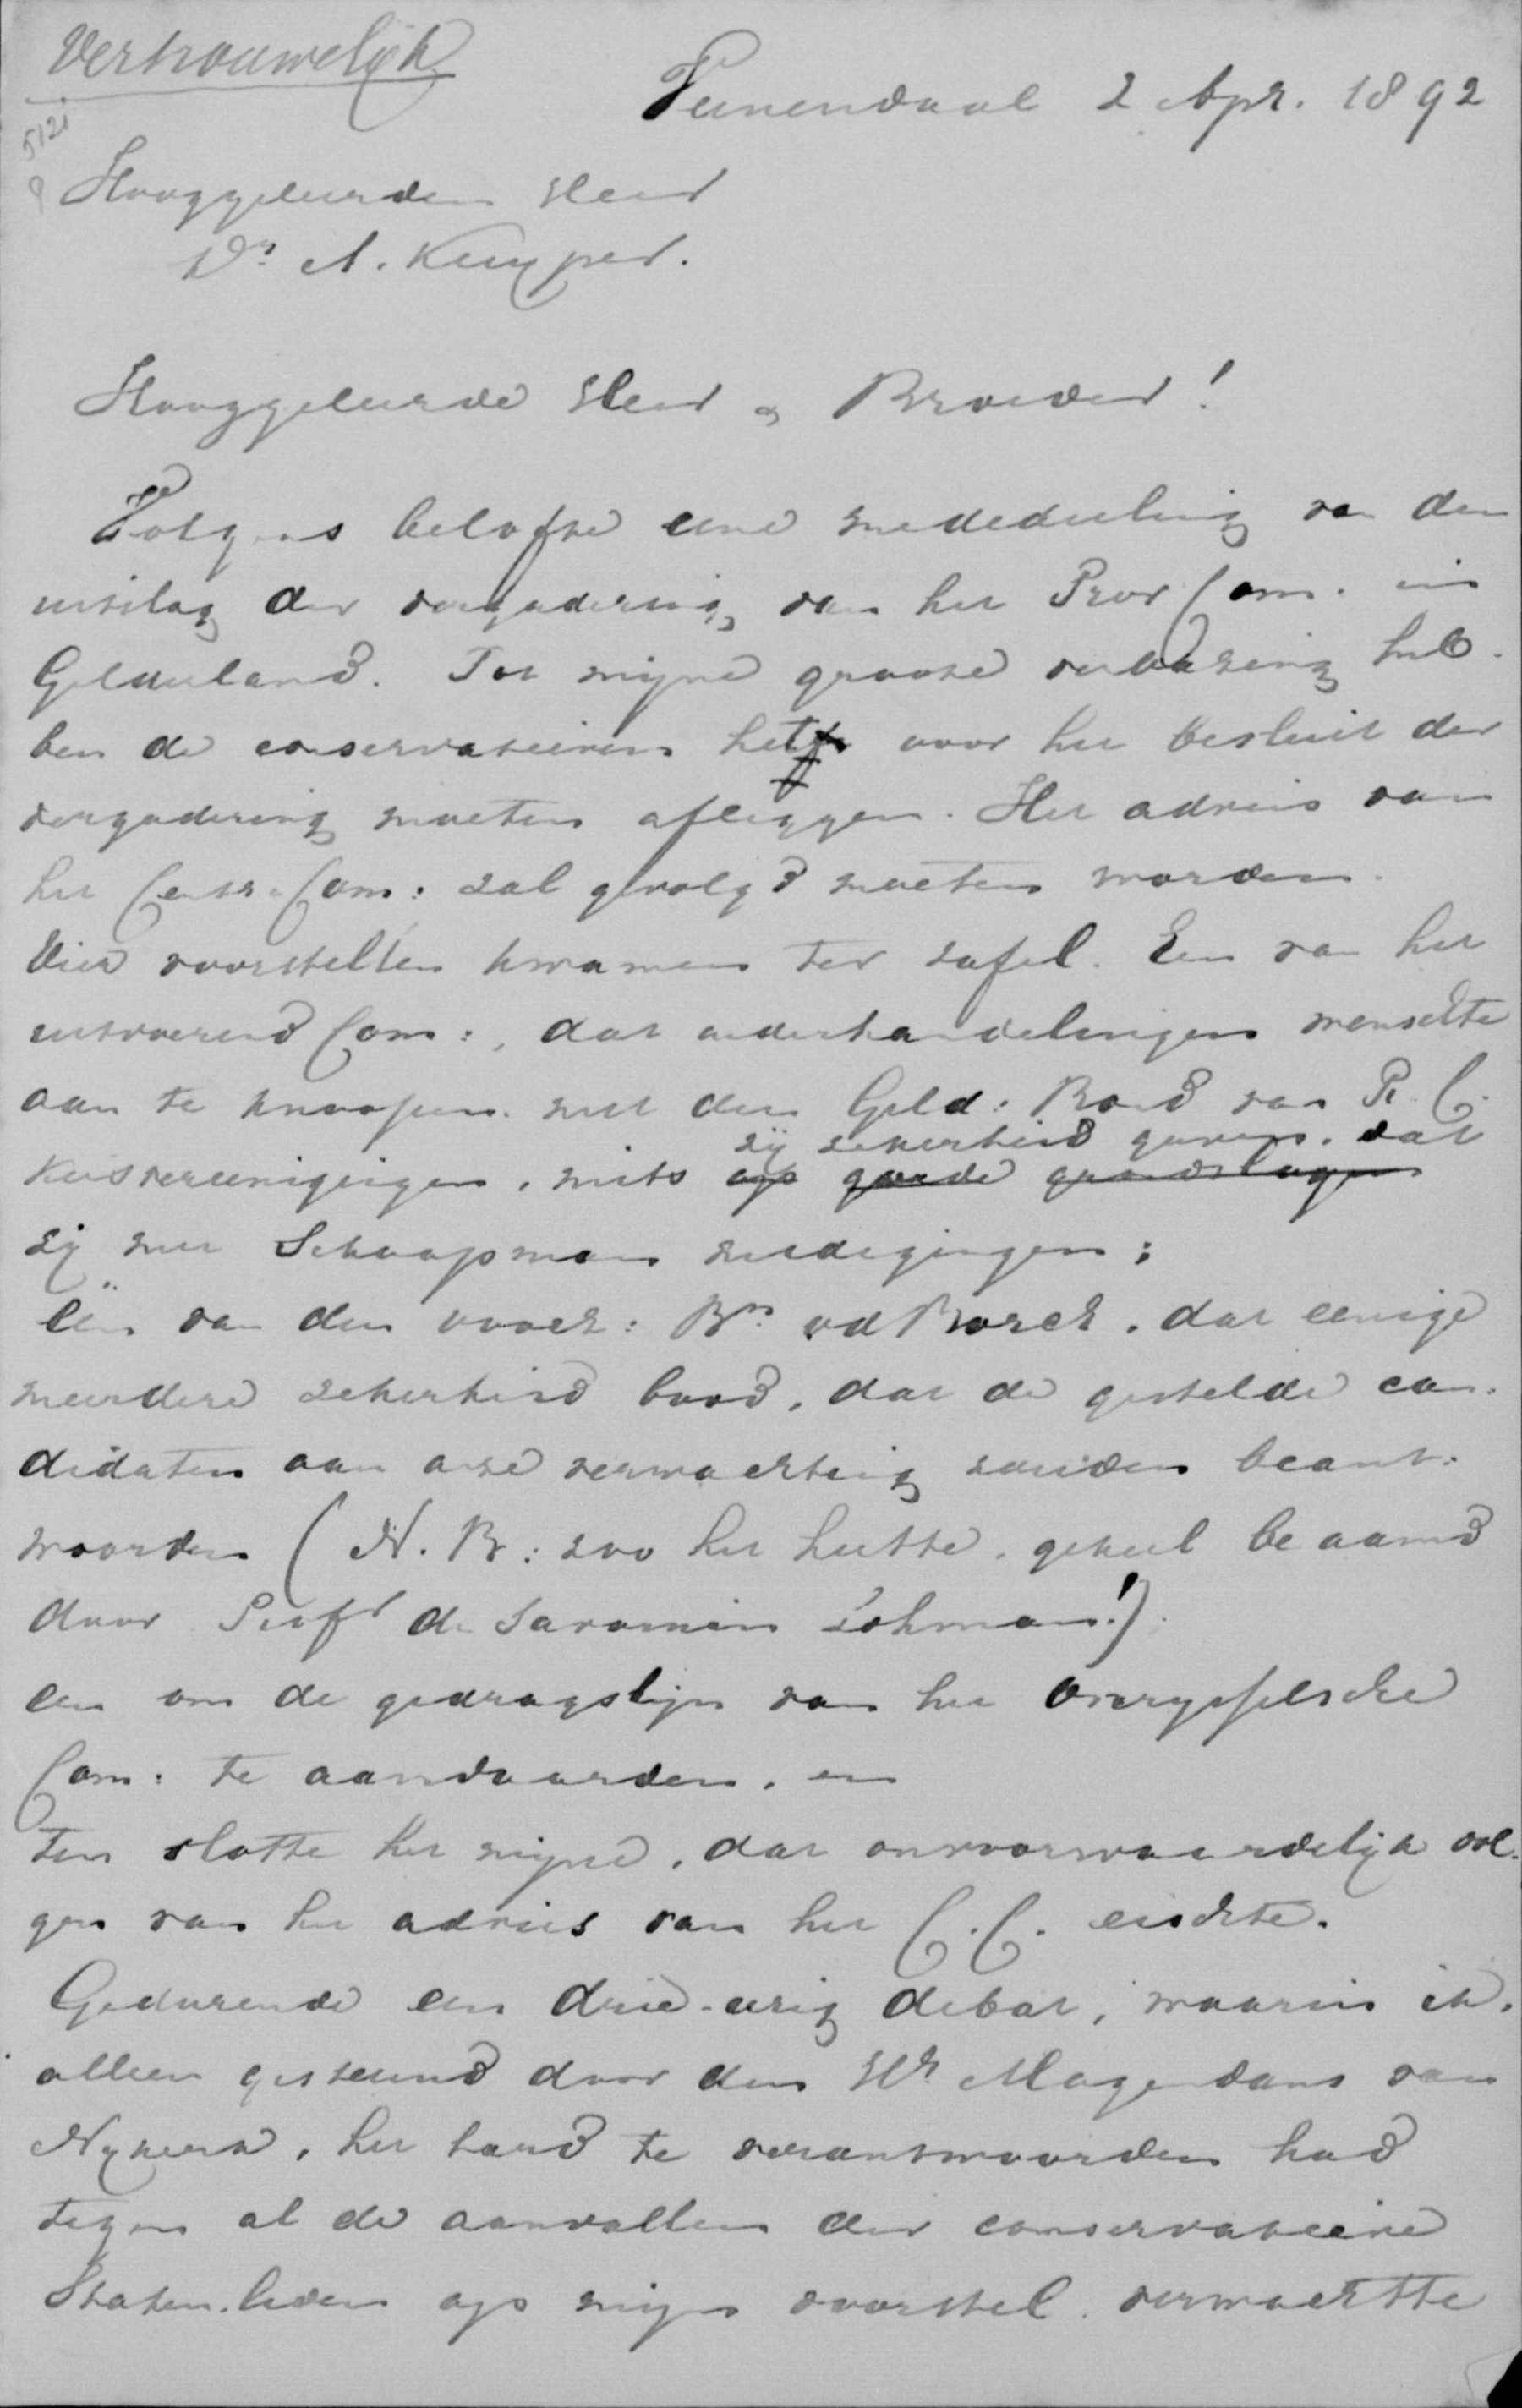 Vertrouwelijk
Veenendaal 2 Apr. 1892
5121
Hooggeleerden Heer
Dr. A. Kuyper.
Hooggeleerde Heer & Broeder!
Volgens belofte eene mededeeling van den
uitslag der vergadering van het Prov Com. in
Gelderland. Tot mijne groote verbazing heb-
ben de conservatieven het voor het besluit der
vergadering moeten afleggen. Het advies van
het Centr. Com: zal gevolgd moeten worden.
Vier voorstellen kwamen ter tafel. Een van het
uitvoerend Com:, dat onderhandelingen wenschte
aan te knoopen met den Geld: Bond van R. C.
zij zekerheid gaven, dat
Kiesvereenigingen, mits op goede grondslagen
zij met Schaepman medegingen;
één van den voorz: Bn vd Borch, dat eenige
meerdere zekerheid bood, dat de gestelde can-
didaten aan onze verwachting zouden beant-
woorden (N.B: zoo het heette, geheel beaamd
door Profr de Savornin Lohman!).
een om de gedragslijn van het Overysselsche
Com: te aanvaarden, en
ten slotte het mijne, dat onvoorwaardelijk vol-
gen van het advies van het C.C. eischte.
Gedurende een drie-urig debat, waarin ik,
alleen gesteund door den Hr Magendans van
Nykerk, het hard te verantwoorden had
tegen al de aanvallen der conservatieve
Staten-leden op mijn voorstel, verwachtte